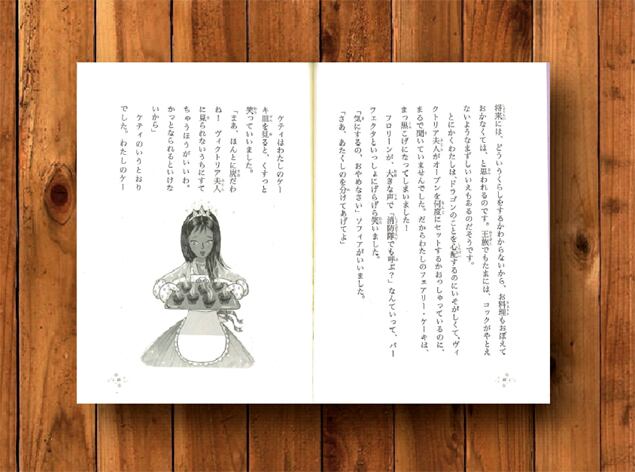 将来には、どういうくらしをするかわからないから、お料理もおぼえて
おかなくては、と思われるのです。王族でもたまには、コックがやとえ
ないようなまずしいいえもあるのだそうです。
とにかくわたしは、ドラゴンのことを心配するのにいそがしくて、ヴィ
クトリア夫人がオーブンを何度にセットするかおっしゃっているのに、
まるで聞いていませんでした。だからわたしのフェアリー・ケーキは、
まっ黒こげになってしまいました！
フロリーンが、大きな声で「消防隊でも呼ぶ？」なんていって、パー
フェクタといっしょにげらげら笑いました。
「気にするの、おやめなさい」ソフィアがいいました。
「さあ、あたくしのを分けてあげてよ」
ケティはわたしのケー
キ皿を見ると、くすっと
笑っていいました。
「まあ、ほんとに炭だわ
ね！　ヴィクトリア夫人
に見られないうちにすて
ちゃうほうがいいわ。
かっとなられるといけな
いから」
ケティのいうとおり
でした。わたしのケー